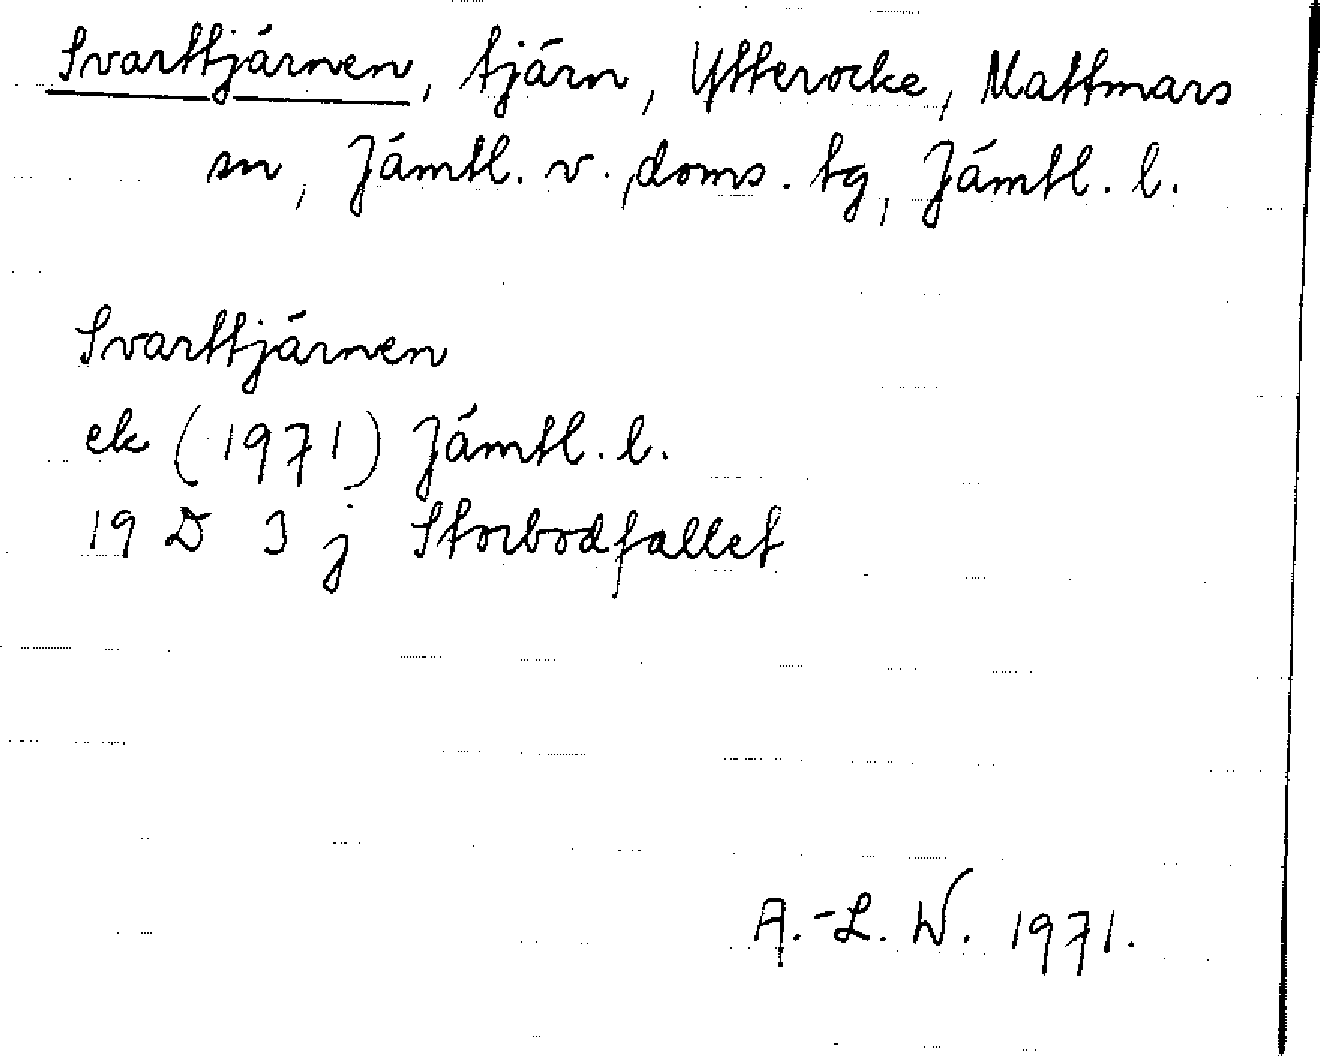 Svarttjärnen, tjärn, Ytterocke, Mattmars
sn, Jämtl. v. doms. tg, Jämtl. l.
Svarttjärnen
ek (1971) Jämtl. l.
19 D 3 j Storbodfallet
A.-L. W. 1971.